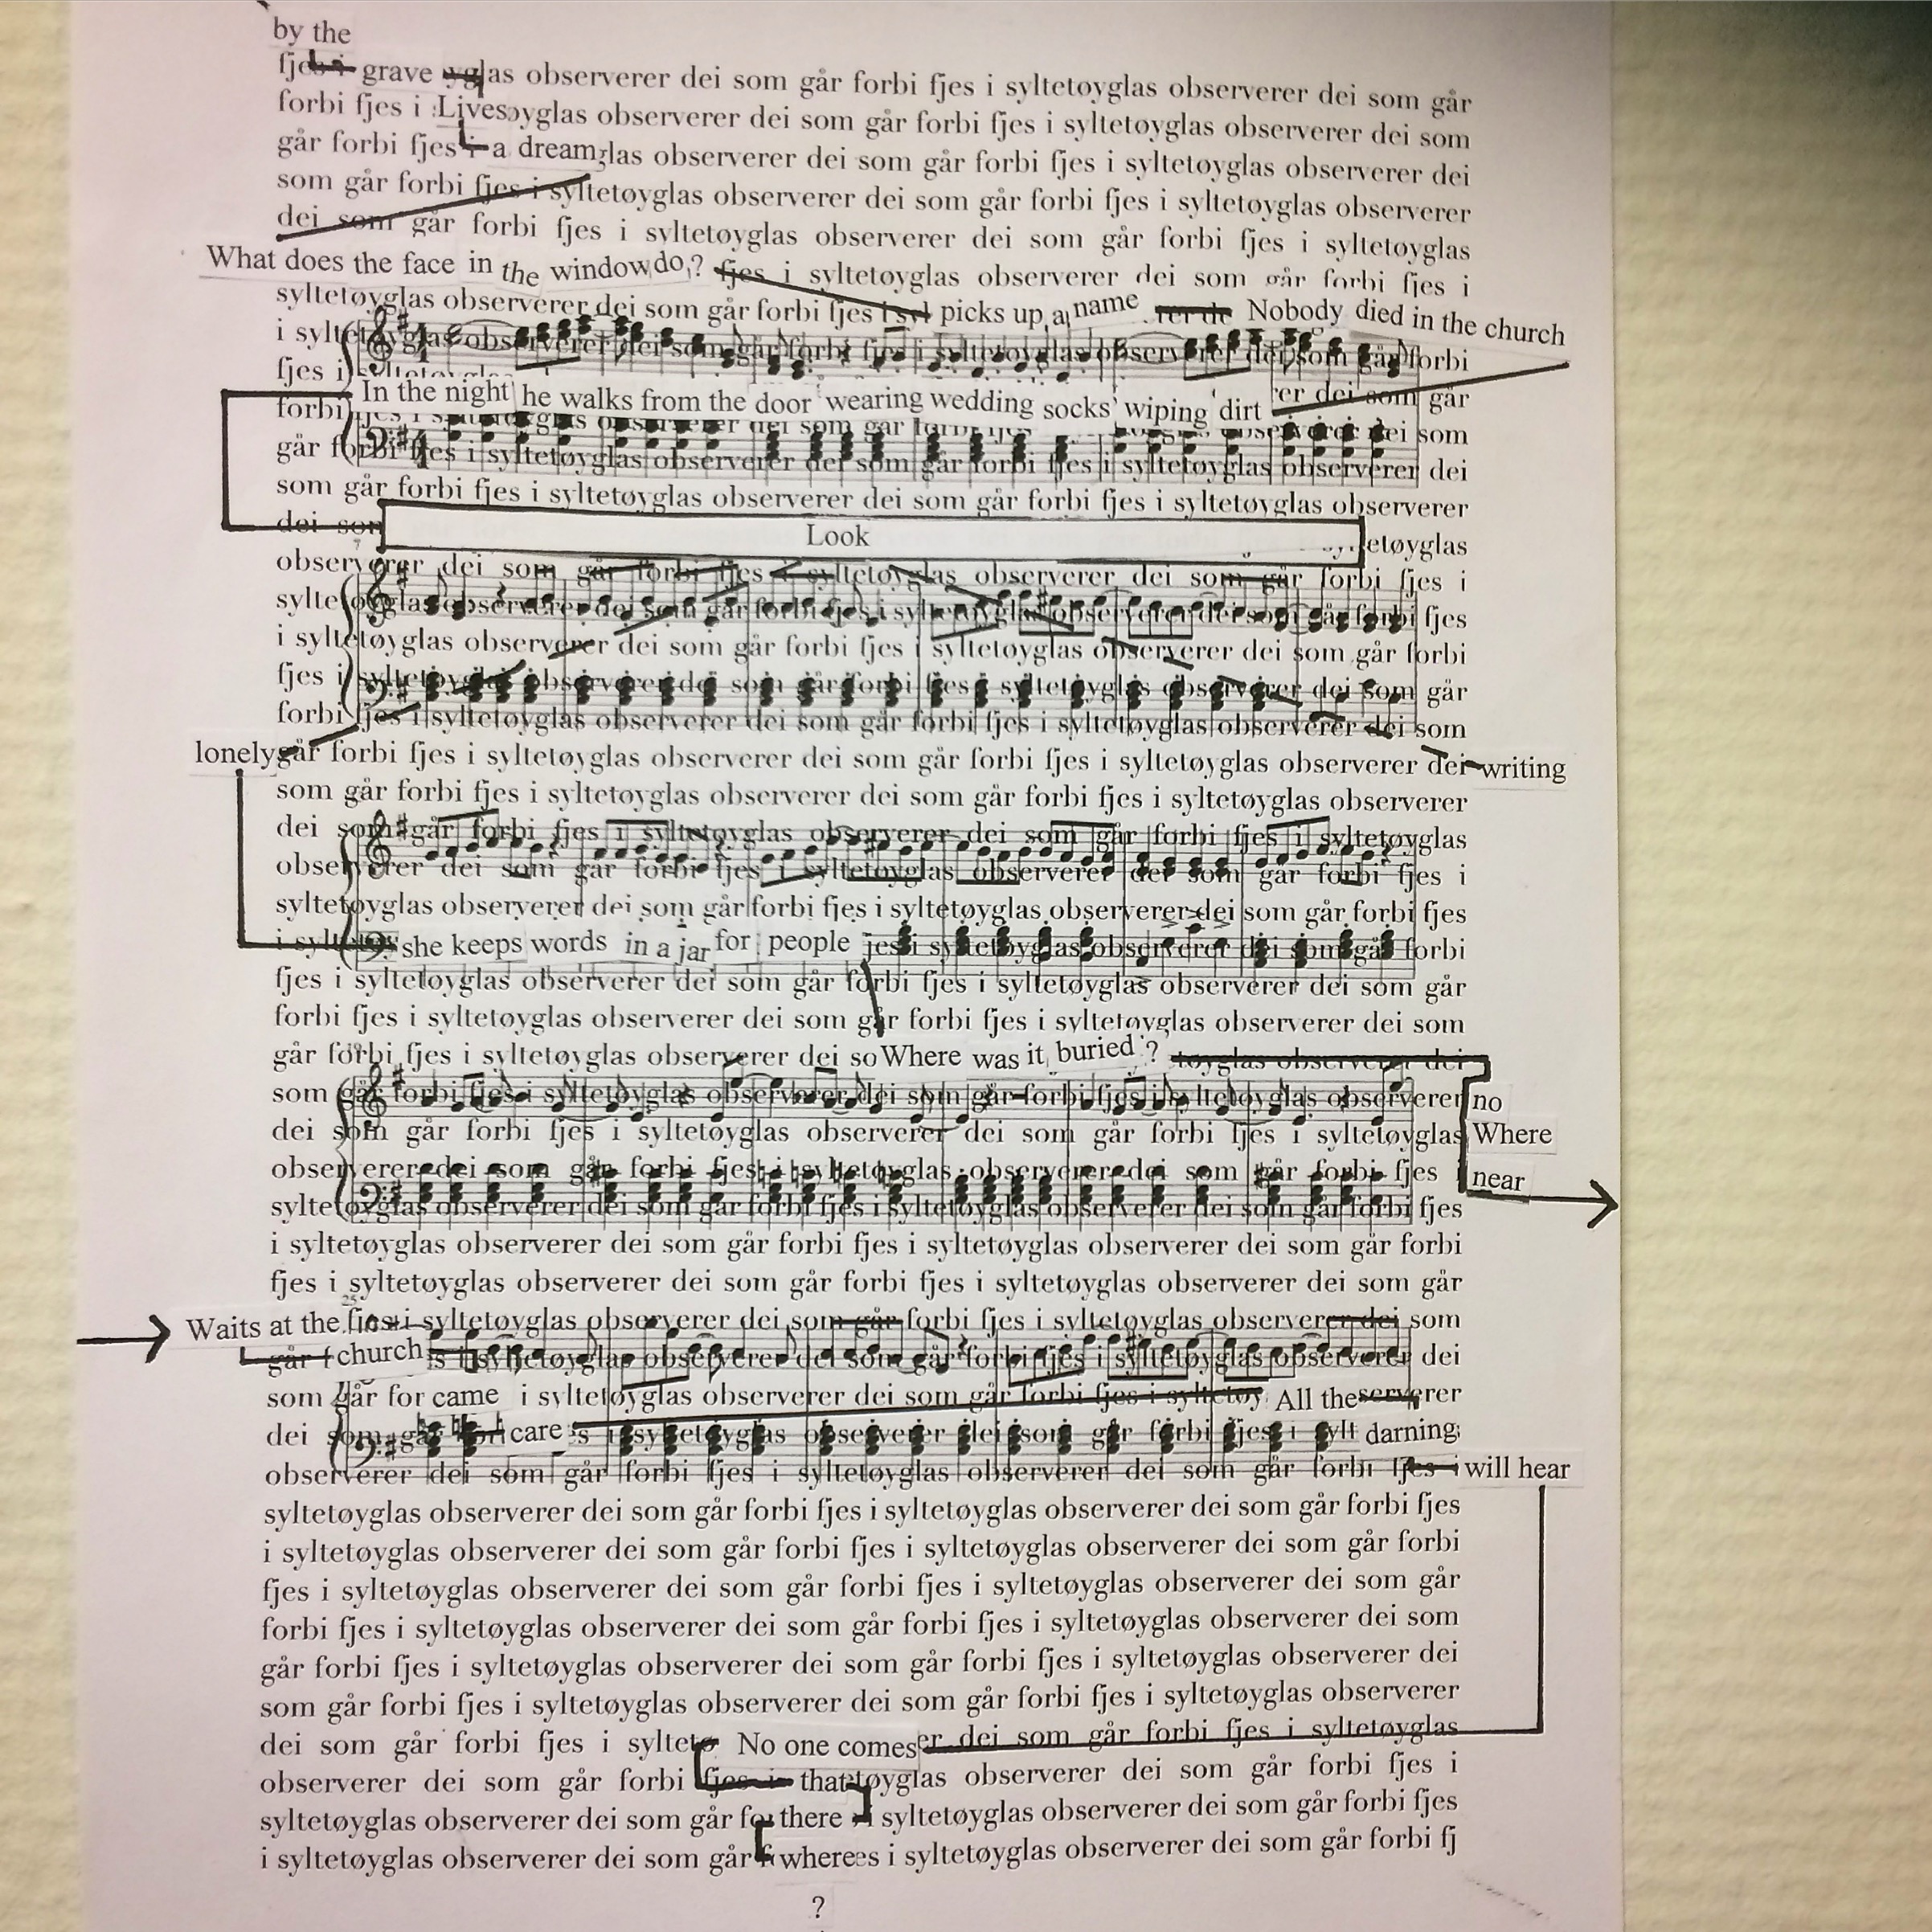 by the
fjes i grave yglas observerer dei som går forbi fjes i syltetøyglas observerer dei som går
forbi fjes i Lives øyglas observerer dei som går forbi fjes i syltetøyglas observerer dei som
går forbi fjes i a dream glas observerer dei som går forbi fjes i syltetøyglas observerer dei
som går forbi fjes i syltetøyglas observerer dei som går forbi fjes i syltetøyglas observerer
dei som går forbi fjes i syltetøyglas observerer dei som går forbi fjes i syltetøyglas
What does the face in the window do ? fjes i syltetøyglas observerer dei som går forbi fjes i
syltetøyglas observerer dei som går forbi fjes i syl picks up a name rer de Nobody died in the church
i syltetøyglas observerer dei som går forbi fjes i syltetøyglas observerer dei som går forbi
fjes i syltetøyglas
In the night he walks from the door wearing wedding socks wiping dirt rer dei som går
forbi fjes i syltetøyglas observerer dei som går forbi fjes observerer dei som
går forbi fjes i syltetøyglas observerer dei som går forbi fjes i syltetøyglas observerer dei
som går forbi fjes i syltetøyglas observerer dei som går forbi fjes i syltetøyglas observerer
dei som Look etøyglas
observerer dei som går forbi fjes i syltetøyglas observerer dei som går forbi fjes i
syltetøyglas observerer dei som går forbi fjes i syltetøyglas observerer dei som går forbi fjes
i syltetøyglas observerer dei som går forbi fjes i syltetøyglas observerer dei som går forbi
fjes i syltetøyglas observerer dei som går forbi fjes i syltetøyglas observerer dei som går
forbi fjes i syltetøyglas observerer dei som går forbi fjes i syltetøyglas observerer dei som
lonely går forbi fjes i syltetøyglas observerer dei som går forbi fjes i syltetøyglas observerer dei writing
som går forbi fjes i syltetøyglas observerer dei som går forbi fjes i syltetøyglas observerer
dei som går forbi fjes i syltetøyglas observerer dei som går forbi fjes i syltetøyglas
observerer dei som går forbi fjes i syltetøyglas observerer dei som går forbi fjes i
syltetøyglas observerer dei som går forbi fjes i syltetøyglas observerer dei som går forbi fjes
i syltetøy she keeps words in a jar for people jes i syltetøyglas observerer dei som går forbi
fjes i syltetøyglas observerer dei som går forbi fjes i syltetøyglas observerer dei som går
forbi fjes i syltetøyglas observerer dei som går forbi fjes i syltetøyglas observerer dei som
går forbi fjes i syltetøyglas observerer dei so Where was it buried ? tøyglas observerer dei
som går forbi fjes i syltetøyglas observerer dei som går forbi fjes i syltetøyglas observerer no
dei som går forbi fjes i syltetøyglas observerer dei som går forbi fjes i syltetøyglas Where
observerer dei som går forbi fjes i syltetøyglas observerer dei som går forbi fjes near
syltetøyglas observerer dei som går forbi fjes i syltetøyglas observerer dei som går forbi fjes
i syltetøyglas observerer dei som går forbi fjes i syltetøyglas observerer dei som går forbi
fjes i syltetøyglas observerer dei som går forbi fjes i syltetøyglas observerer dei som går
Waits at the fjes i syltetøyglas observerer dei som går forbi fjes i syltetøyglas observerer dei som
går f church s i syltetøyglas observerer dei som går forbi fjes i syltetøyglas observerer dei
som går for came i syltetøyglas observerer dei som går forbi fjes i syltetøy All the serverer
dei som går fori care s i syltetøyglas observerer dei som går forbi fjes i sylt darning
observerer dei som går forbi fjes i syltetøyglas observerer dei som går forbi fjes i will hear
syltetøyglas observerer dei som går forbi fjes i syltetøyglas observerer dei som går forbi fjes
i syltetøyglas observerer dei som går forbi fjes i syltetøyglas observerer dei som går forbi
fjes i syltetøyglas observerer dei som går forbi fjes i syltetøyglas observerer dei som går
forbi fjes i syltetøyglas observerer dei som går forbi fjes i syltetøyglas observerer dei som
går forbi fjes i syltetøyglas observerer dei som går forbi fjes i syltetøyglas observerer dei
som går forbi fjes i syltetøyglas observerer dei som går forbi fjes i syltetøyglas observerer
dei som går forbi fjes i syltetø No one comes er dei som går forbi fjes i syltetøyglas
observerer dei som går forbi fjes i that tøyglas observerer dei som går forbi fjes i
syltetøyglas observerer dei som går fo there i syltetøyglas observerer dei som går forbi fjes
i syltetøyglas observerer dei som går f where es i syltetøyglas observerer dei som går forbi fj
?